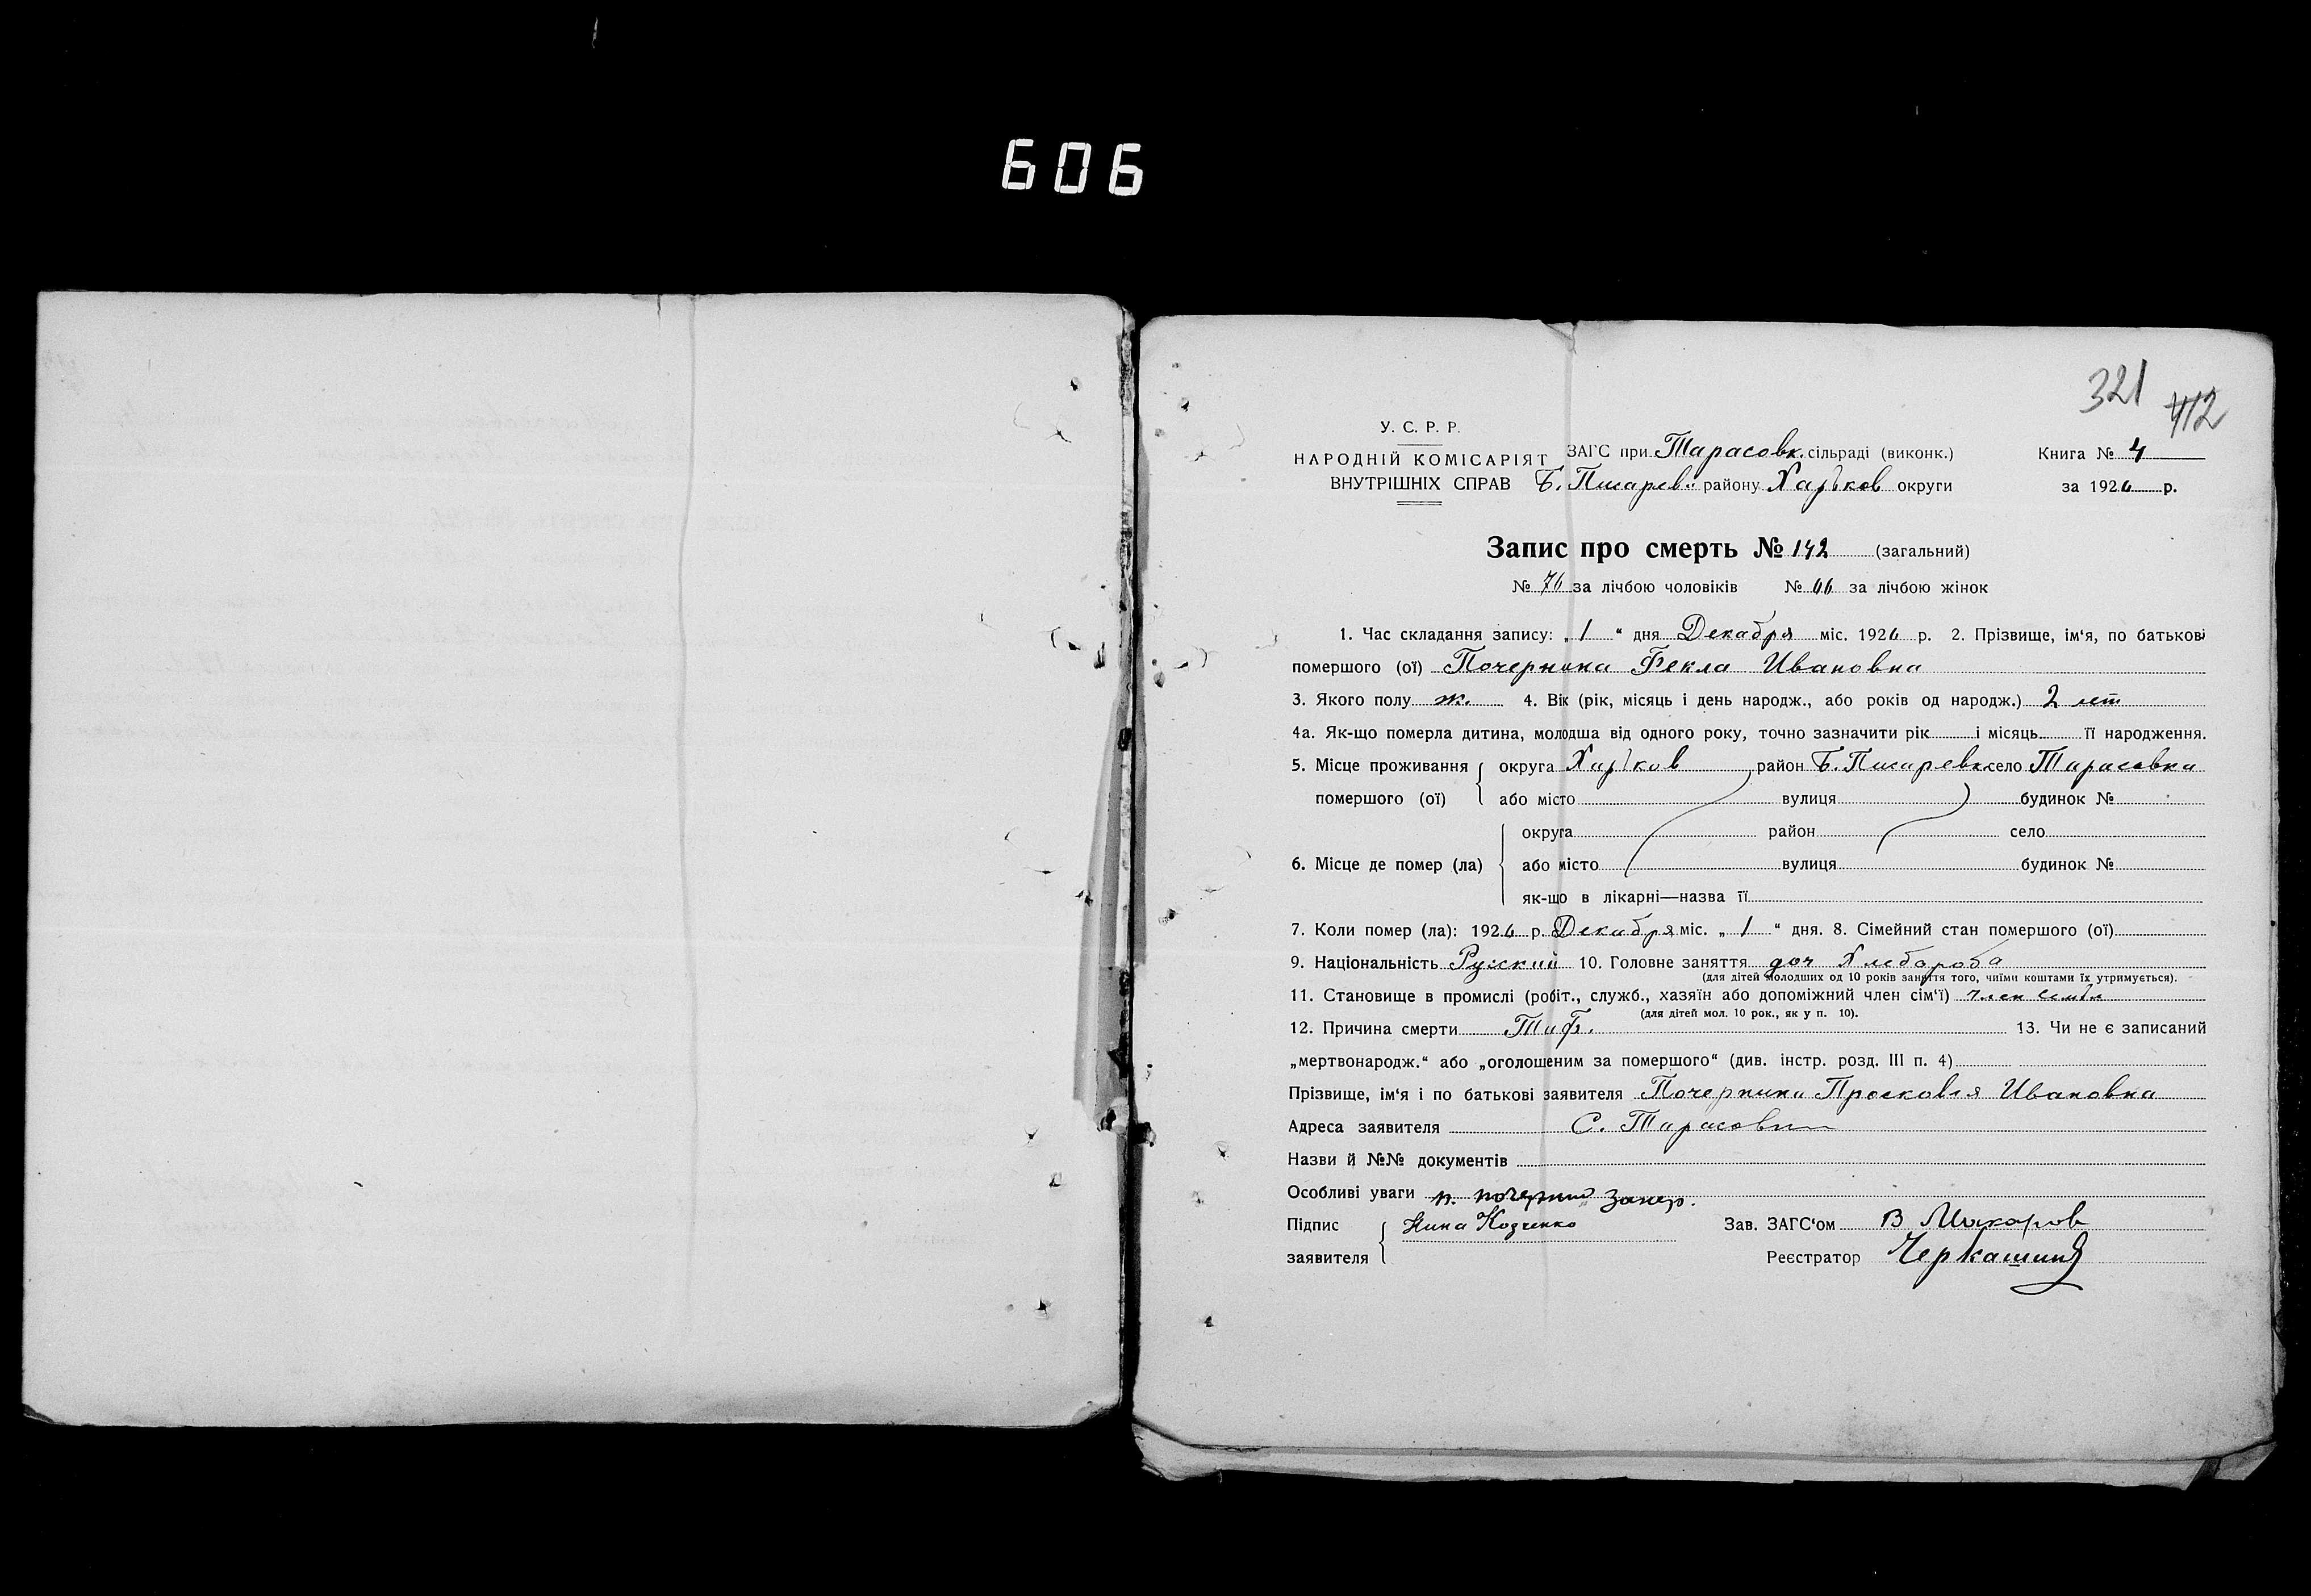 606
321
412
У. С. Р. Р.
НАРОДНІЙ КОМІСАРІЯТ
ВНУТРІШНІХ СПРАВ
ЗАГС при Тарасовк. сільраді (виконк.)
Б. Писарев. району Харьков округи
Книга № 4
за 1926 р.
Запис про смерть № 142 (загальний)
№ 76 за лічбою чоловіків № 66 за лічбою жінок
1. Час складання запису: „ 1 “ дня Декабря міс. 1926 р. 2. Прізвище, ім‘я, по батькові
помершого (ої) Почернина Фекла Ивановна
3. Якого полу ж. 4. Вік (рік, місяць і день народж., або років од народж.) 2 лет
4а. Як-що померла дитина, молодша від одного року, точно зазначити рік і місяць її народження.
5. Місце проживання округа Харьков район Б. Писаревк село Тарасовка
помершого (ої) або місто вулиця будинок №
округа район село
6. Місце де помер (ла) або місто вулиця будинок №
як-що в лікарні—назва її
7. Коли помер (ла): 1926 р. Декабря міс. „ 1 “ дня. 8. Сімейний стан помершого (ої)
9. Національність Руский 10. Головне заняття доч Хлебороба
(для дітей молодших од 10 років заняття того, чиїми коштами їх утримується).
11. Становище в промислі (робіт., служб., хазяїн або допоміжний член сім‘ї) член семьи
(для дітей мол. 10 рок., як у п. 10).
12. Причина смерти Тиф. 13. Чи не є записаний
„мертвонародж.“ або „оголошеним за помершого“ (див. інстр. розд. III п. 4)
Прізвище, ім‘я і по батькові заявителя Почернина Просковия Ивановна
Адреса заявителя С. Тарасовка
Назви й №№ документів
Особливі уваги
Підпис Нина Козченко Зав. ЗАГС‘ом В Макаров
заявителя Реєстратор Черкашин